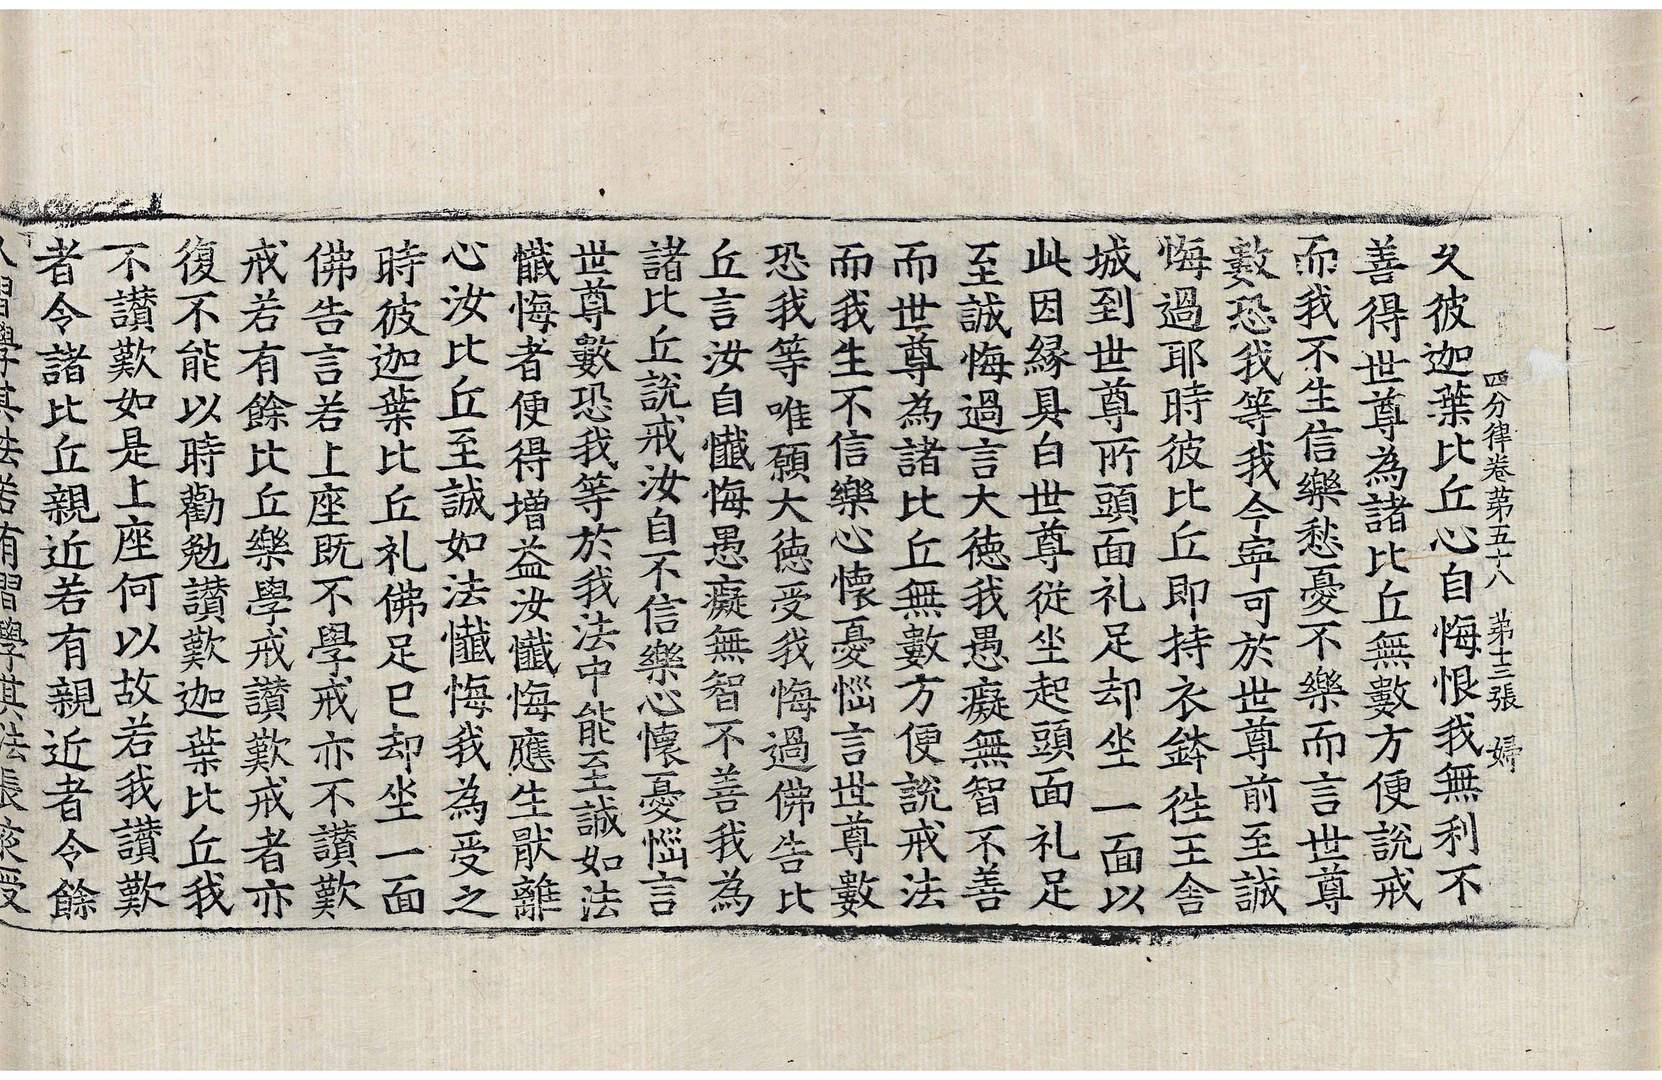 四分律卷第五十八　第十三張　婦
久彼迦葉比丘心自悔恨我無利不
善得世尊為諸比丘無數方便說戒
而我不生信樂愁憂不樂而言世尊
數恐我等我今寧可於世尊前至誠
悔過耶時彼比丘即持衣鉢徃王舍
城到世尊所頭面礼足却坐一面以
此因縁具白世尊從坐起頭面礼足
至誠悔過言大德我愚癡無智不善
而世尊為諸比丘無數方便說戒法
而我生不信樂心懷憂惱言世尊數
恐我等唯願大德受我悔過佛告比
丘言汝自懺悔愚癡無智不善我為
諸比丘說戒汝自不信樂心懷憂惱言
世尊數恐我等於我法中能至誠如法
懺悔者便得增益汝懺悔應生厭離
心汝比丘至誠如法懺悔我為受之
時彼迦葉比丘礼佛足已却坐一面
佛告言若上座既不學戒亦不讃歎
戒若有餘比丘樂學戒讃歎戒者亦
復不能以時勸勉讃歎迦葉比丘我
不讃歎如是上座何以故若我讃歎
者令諸比丘親近若有親近者令餘
人習學其法若有習學其法長夜受